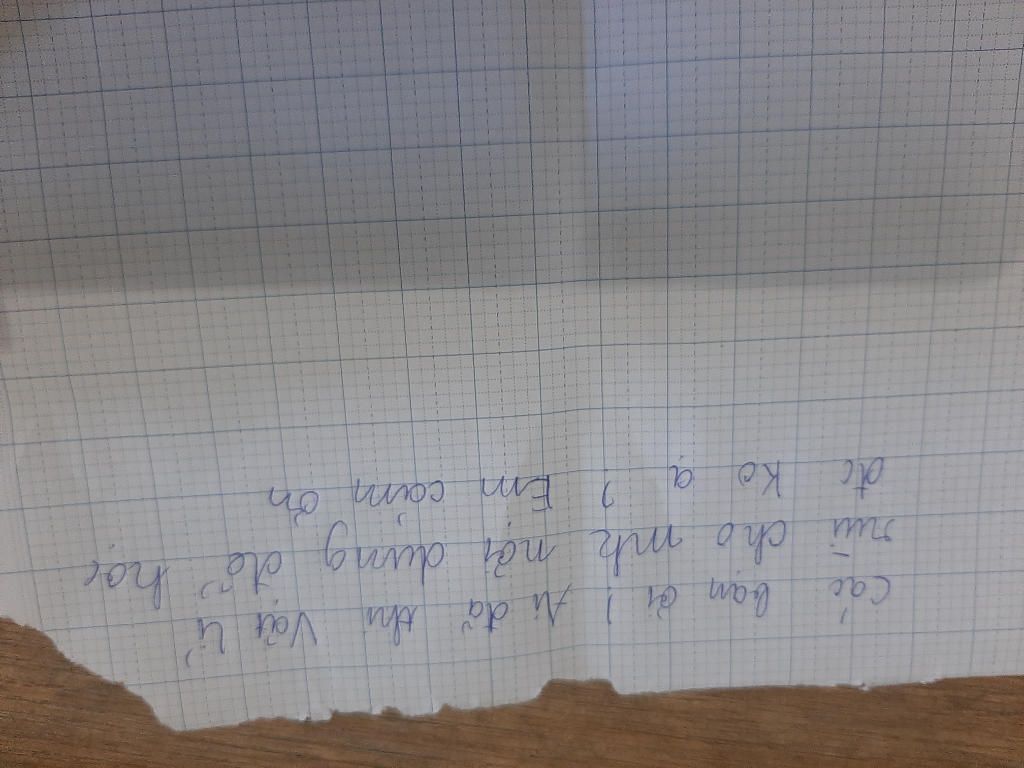 Các bạn ơi ! Ai đã thi Vật Lí
rùi cho mk nội dung đề học
đc ko ạ ? Em cảm ơn